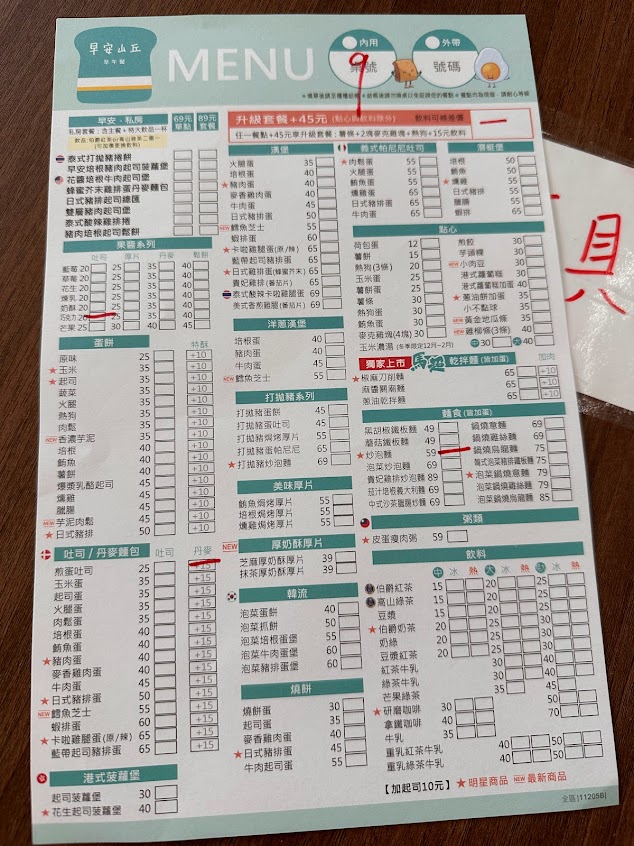 早安山丘
早午餐
MENU
內用
9
桌號
外帶
號碼
早安・私房
69元
單點
89元
套餐
私房套餐：含主餐+特大飲品一杯
泰式打拋豬捲餅
早安培根豬肉起司菠蘿堡
花醬培根牛肉起司堡
蜂蜜芥末雞排蛋丹麥麵包
日式豬排起司總匯
雙層豬肉起司堡
泰式酸辣雞排捲
豬肉培根起司鬆餅
果醬系列
吐司 厚片 丹麥 鬆餅
藍莓 20 25 35 40
草莓 20 25 35 40
花生 20 25 35 40
煉乳 20 25 35 40
奶酥 20 25 35 40
巧克力 20 25 35 40
芒果 25 30 40 45
蛋餅
特酥
原味 25 +10
玉米 35 +10
起司 35 +10
蔬菜 35 +10
火腿 35 +10
熱狗 35 +10
肉鬆 35 +10
NEW 香濃芋泥 35 +10
培根 40 +10
鮪魚 40 +10
薯餅 40 +10
爆漿乳酪起司 45 +10
燻雞 45 +10
臘腸 45 +10
NEW 芋泥肉鬆 45 +10
日式豬排 50 +10
吐司 / 丹麥麵包
吐司 丹麥
煎蛋吐司 25 +15
玉米蛋 35 +15
起司蛋 35 +15
火腿蛋 35 +15
肉鬆蛋 35 +15
培根蛋 40 +15
鮪魚蛋 40 +15
豬肉蛋 40 +15
麥香雞肉蛋 40 +15
牛肉蛋 45 +15
日式豬排蛋 50 +15
NEW 鱈魚芝士 55 +15
蝦排蛋 60 +15
卡啦雞腿蛋(原/辣) 65 +15
藍帶起司豬排蛋 65 +15
港式菠蘿堡
起司菠蘿堡 30
花生起司菠蘿堡 40
升級套餐+45元 (點心與飲料除外)
飲料可補差價
任一餐點+45元享升級套餐：薯條+2塊麥克雞塊+熱狗+15元飲料
漢堡
火腿蛋 35
玉米蛋 35
豬肉蛋 40
麥香雞肉蛋 40
牛肉蛋 45
日式豬排蛋 50
NEW 鱈魚芝士 55
蝦排蛋 60
卡啦雞腿蛋(原/辣) 65
藍帶起司豬排蛋 65
日式雞排蛋(蜂蜜芥末) 65
貴妃雞排(番茄片) 65
泰式酸辣卡啦雞腿蛋 69
美式香煎雞腿蛋(番茄片) 69
洋蔥漢堡
培根蛋 40
豬肉蛋 40
牛肉蛋 45
NEW 鱈魚芝士 55
打拋豬系列
打拋豬蛋餅 45
打拋豬蛋吐司 45
打拋豬焗烤厚片 55
打拋豬蛋帕尼尼 65
打拋豬炒泡麵 69
美味厚片
鮪魚焗烤厚片 55
培根焗烤厚片 55
燻雞焗烤厚片 55
NEW 厚奶酥厚片
芝麻厚奶酥厚片 39
抹茶厚奶酥厚片 39
韓流
泡菜蛋餅 40
泡菜抓餅 50
泡菜培根蛋堡 55
泡菜牛肉蛋堡 60
泡菜豬排蛋堡 60
燒餅
燒餅蛋 30
起司蛋 35
麥香雞肉蛋 40
日式豬排蛋 55
牛肉起司蛋 50
義式帕尼尼吐司
肉鬆蛋 55
火腿蛋 55
鮪魚蛋 55
燻雞蛋 55
日式豬排蛋 60
牛肉蛋 60
潛艇堡
培根 50
鮪魚 50
燻雞 50
日式豬排 55
臘腸 55
蝦排 55
點心
荷包蛋 12
薯餅 15
熱狗(3條) 20
玉米蛋 25
薯餅蛋 25
薯條 30
熱狗蛋 30
鮪魚蛋 30
麥克雞塊(4塊) 30
玉米濃湯 (冬季限定12月~2月) 中30 大40
煎餃 30
芋頭粿 30
NEW 小肉豆 30
港式蘿蔔糕 30
港式蘿蔔糕加蛋 40
蔥油餅加蛋 30
小不點球 35
NEW 黃金地瓜條 35
NEW 雞柳條(3條) 40
獨家上市 乾拌麵(皆加蛋)
加肉
椒麻刀削麵 65 +10
麻醬關廟麵 65 +10
蔥油乾拌麵 65 +10
麵食(皆加蛋)
黑胡椒鐵板麵 49
蘑菇鐵板麵 49
炒泡麵 59
泡菜炒泡麵 69
貴妃雞排炒泡麵 89
茄汁培根義大利麵 69
中式沙茶臘腸炒麵 69
鍋燒意麵 69
鍋燒雞絲麵 69
鍋燒烏龍麵 75
韓式泡菜豬排鐵板麵 75
泡菜鍋燒意麵 79
泡菜鍋燒雞絲麵 79
泡菜鍋燒烏龍麵 85
粥類
皮蛋瘦肉粥 59
飲料
中 冰 熱 大 冰 熱 冰 熱
伯爵紅茶 15 20 25
高山綠茶 15 20 25
豆漿 15 20 25
伯爵奶茶 20 25 30
奶綠 20 25 30
豆漿紅茶 20 25 30
紅茶牛乳 30 35
綠茶牛乳 30 35
芒果綠茶 35 45
研磨咖啡 40 50
拿鐵咖啡 45 70
牛乳 35
重乳紅茶牛乳 40 50
重乳綠茶牛乳 40 50
【加起司10元】 ★明星商品 NEW 最新商品
全區 [11205B]
具